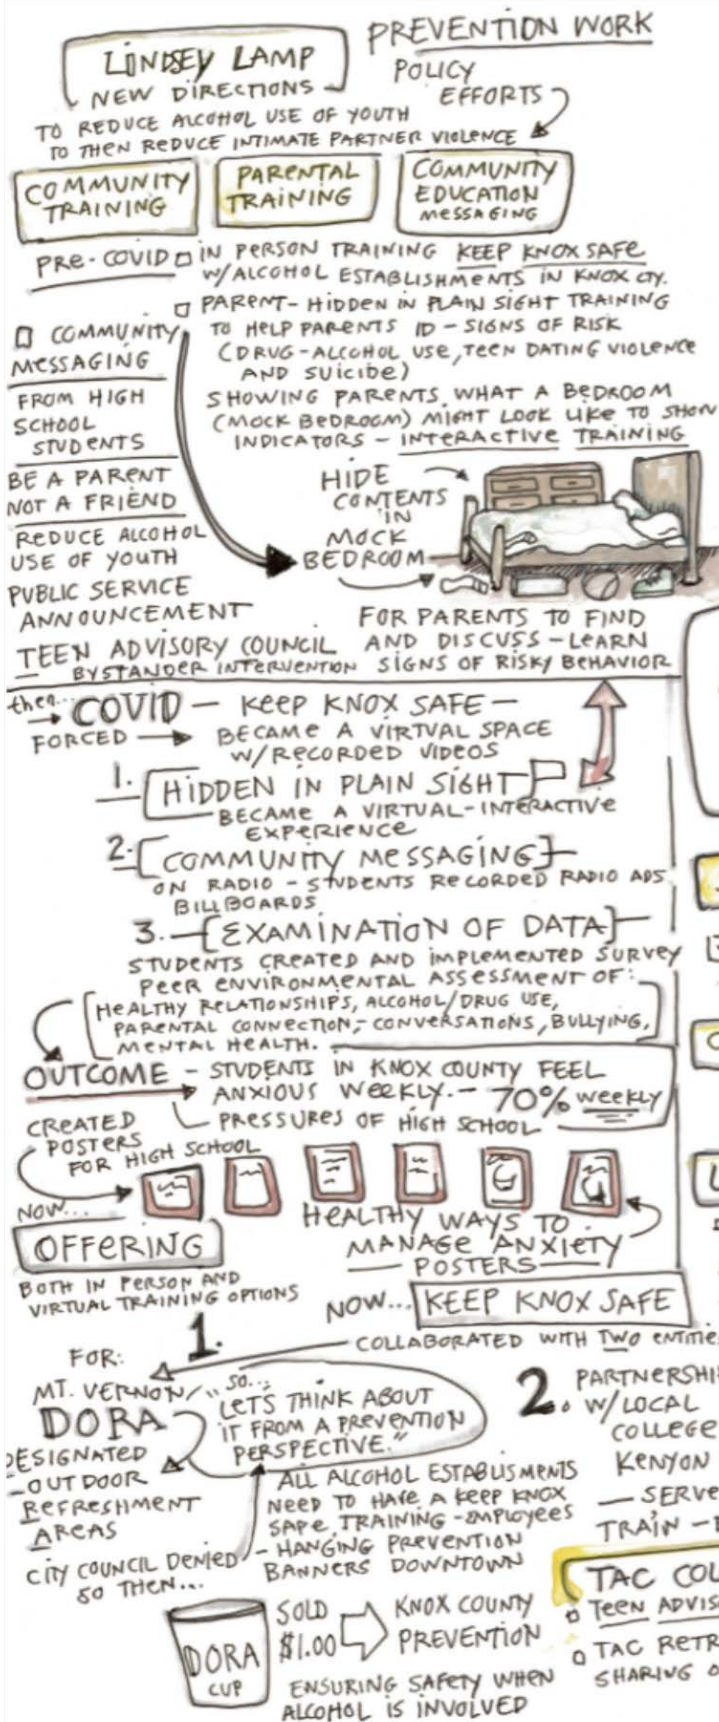 PREVENTION WORK
LINDSEY LAMP
NEW DIRECTIONS
POLICY
EFFORTS
TO REDUCE ALCOHOL USE OF YOUTH
TO THEN REDUCE INTIMATE PARTNER VIOLENCE
COMMUNITY
TRAINING
PARENTAL
TRAINING
COMMUNITY
EDUCATION
MESSAGING
PRE-COVID
IN PERSON TRAINING KEEP KNOX SAFE
W/ALCOHOL ESTABLISHMENTS IN KNOX CTY.
PARENT-HIDDEN IN PLAIN SIGHT TRAINING
TO HELP PARENTS ID - SIGNS OF RISK
(DRUG-ALCOHOL USE, TEEN DATING VIOLENCE
AND SUICIDE)
SHOWING PARENTS WHAT A BEDROOM
(MOCK BEDROOM) MIGHT LOOK LIKE TO SHOW
INDICATORS - INTERACTIVE TRAINING
COMMUNITY
MESSAGING
FROM HIGH
SCHOOL
STUDENTS
BE A PARENT
NOT A FRIEND
REDUCE ALCOHOL
USE OF YOUTH
PUBLIC SERVICE
ANNOUNCEMENT
TEEN ADVISORY COUNCIL
- BYSTANDER INTERVENTION
HIDE
CONTENTS
IN
MOCK
BEDROOM
FOR PARENTS TO FIND
AND DISCUSS - LEARN
SIGNS OF RISKY BEHAVIOR
then...
COVID - KEEP KNOX SAFE -
FORCED
BECAME A VIRTUAL SPACE
W/RECORDED VIDEOS
1. HIDDEN IN PLAIN SIGHT
BECAME A VIRTUAL-INTERACTIVE
EXPERIENCE
2. COMMUNITY MESSAGING
ON RADIO - STUDENTS RECORDED RADIO ADS
BILLBOARDS
3. EXAMINATION OF DATA
STUDENTS CREATED AND IMPLEMENTED SURVEY
PEER ENVIRONMENTAL ASSESSMENT OF:
HEALTHY RELATIONSHIPS, ALCOHOL/DRUG USE,
PARENTAL CONNECTION,- CONVERSATIONS, BULLYING,
MENTAL HEALTH.
OUTCOME - STUDENTS IN KNOX COUNTY FEEL
ANXIOUS WEEKLY. - 70% WEEKLY
PRESSURES OF HIGH SCHOOL
CREATED
POSTERS
FOR HIGH SCHOOL
HEALTHY WAYS TO
MANAGE ANXIETY
POSTERS
NOW...
OFFERING
BOTH IN PERSON AND
VIRTUAL TRAINING OPTIONS
NOW... KEEP KNOX SAFE
COLLABORATED WITH TWO ENTITIE
1.
FOR:
MT. VERNON
DORA
DESIGNATED
OUTDOOR
REFRESHMENT
AREAS
"SO...
LETS THINK ABOUT
IT FROM A PREVENTION
PERSPECTIVE."
CITY COUNCIL DENIED
SO THEN...
ALL ALCOHOL ESTABLISMENTS
NEED TO HAVE A KEEP KNOX
SAFE TRAINING - EMPLOYEES
- HANGING PREVENTION
BANNERS DOWNTOWN
DORA
CUP
SOLD
$1.00
KNOX COUNTY
PREVENTION
ENSURING SAFETY WHEN
ALCOHOL IS INVOLVED
2. PARTNERSHI
W/LOCAL
COLLEGE
KENYON
- SERVE
TRAIN -
TAC COL
TEEN ADVIS
TAC RETR
SHARING